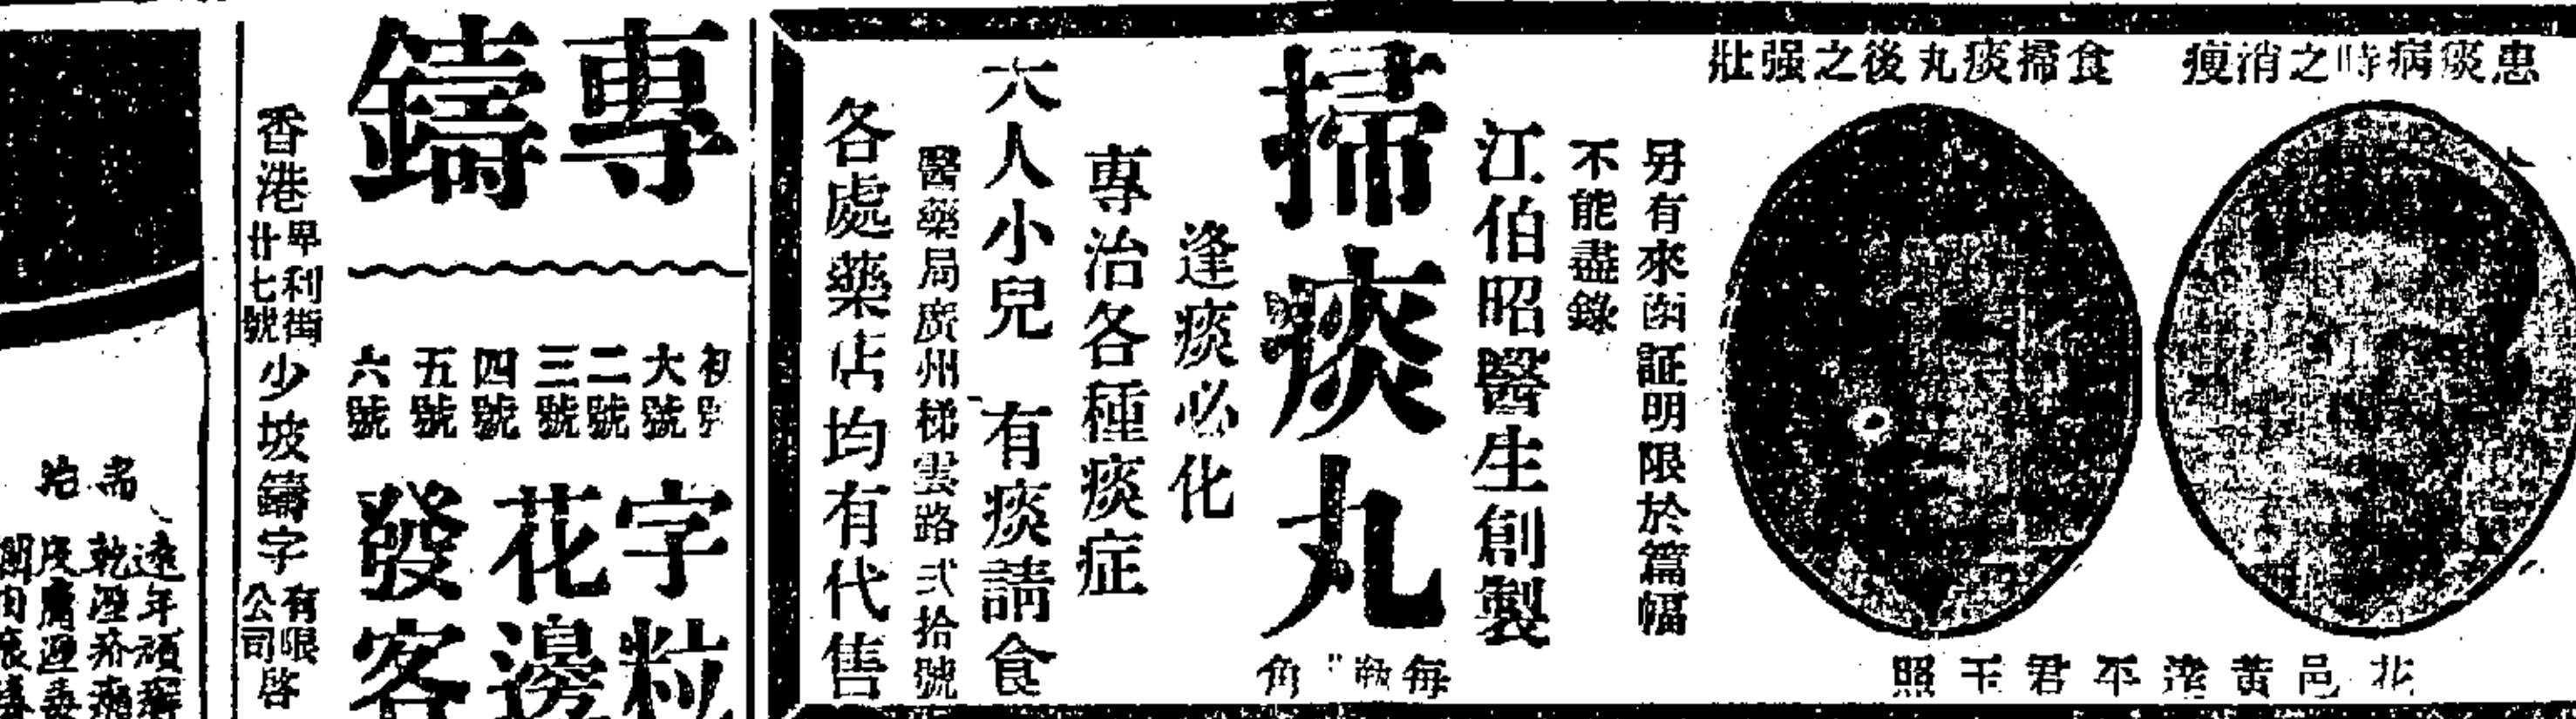 患痰病時之消瘦
食掃痰丸後之强壯
邑黃 君玉照
另有來函証明限於篇幅
不能盡錄
江伯昭醫生創製
掃痰丸
每 角
逢痰必化
專治各種痰症
大人小兒 有痰請食
醫藥局廣州梯雲路弍拾號
各處藥店均有代售
專鑄
初號
大號
二號
三號
四號
五號
六號
字粒
花邊
發客
香港卑利街廿七號少坡鑄字有限公司啓
遠年頑癬
乾濕疥癩